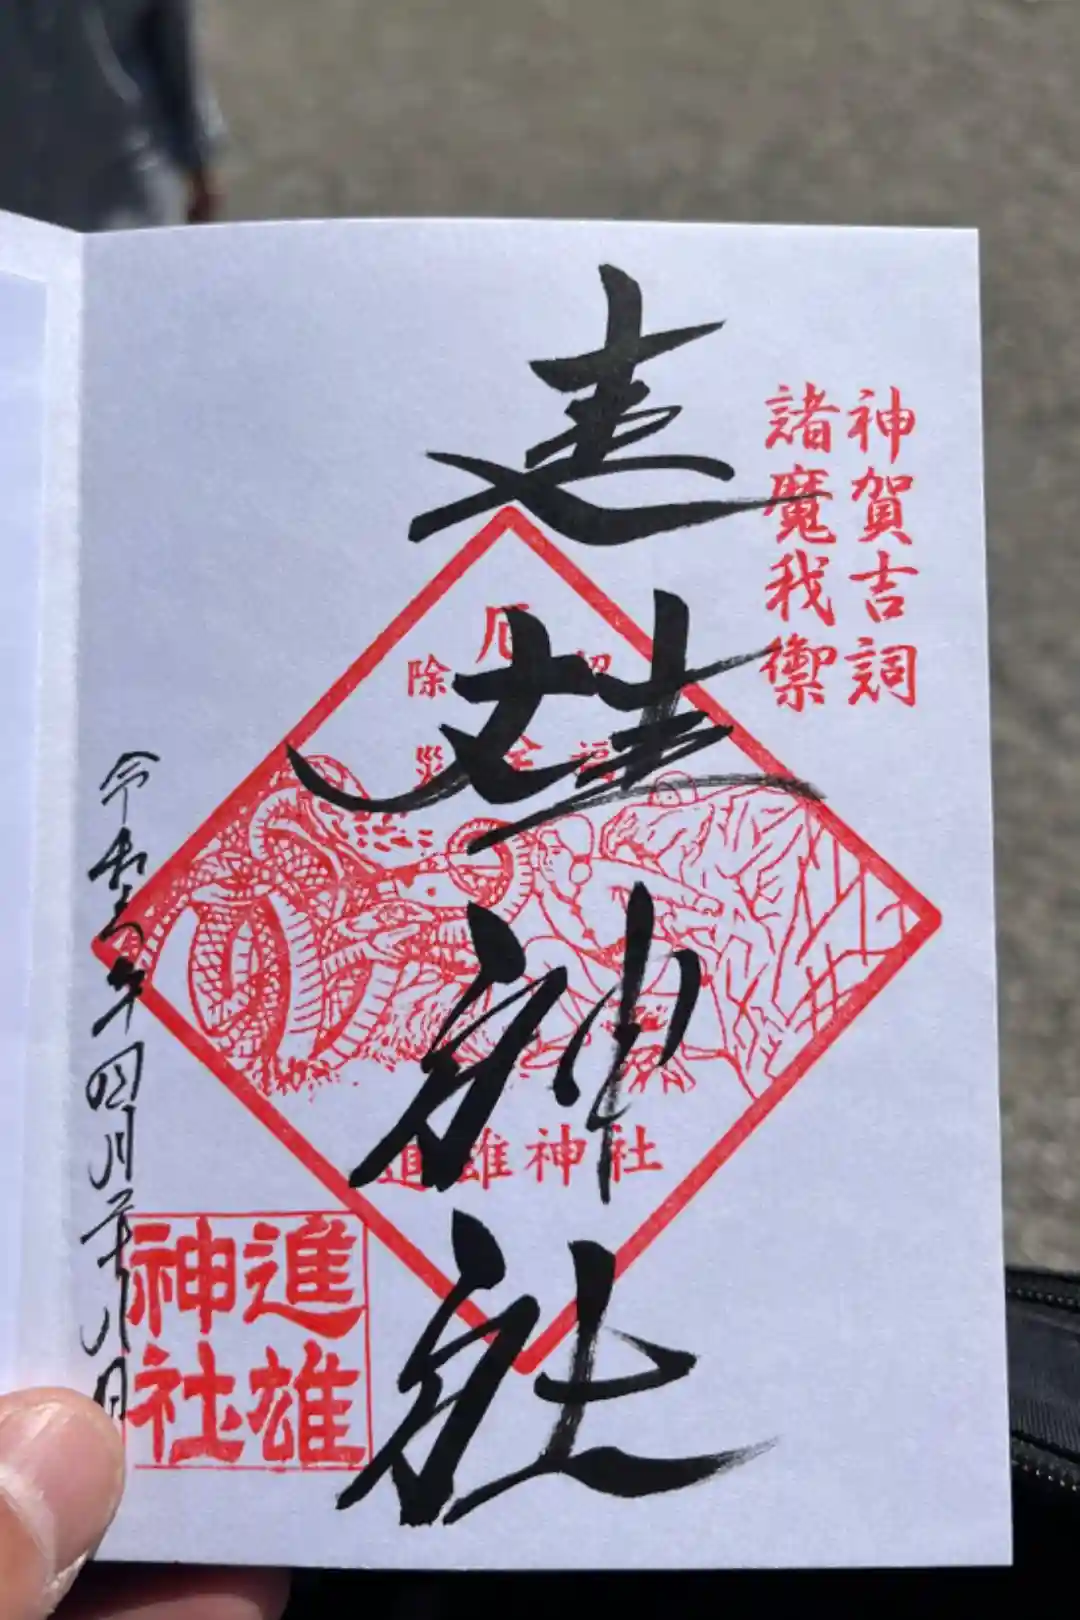 神賀吉詞
諸魔我禦
進雄神社
除厄招
災全福
進雄神社
令和年四月廿八日
進雄
神社